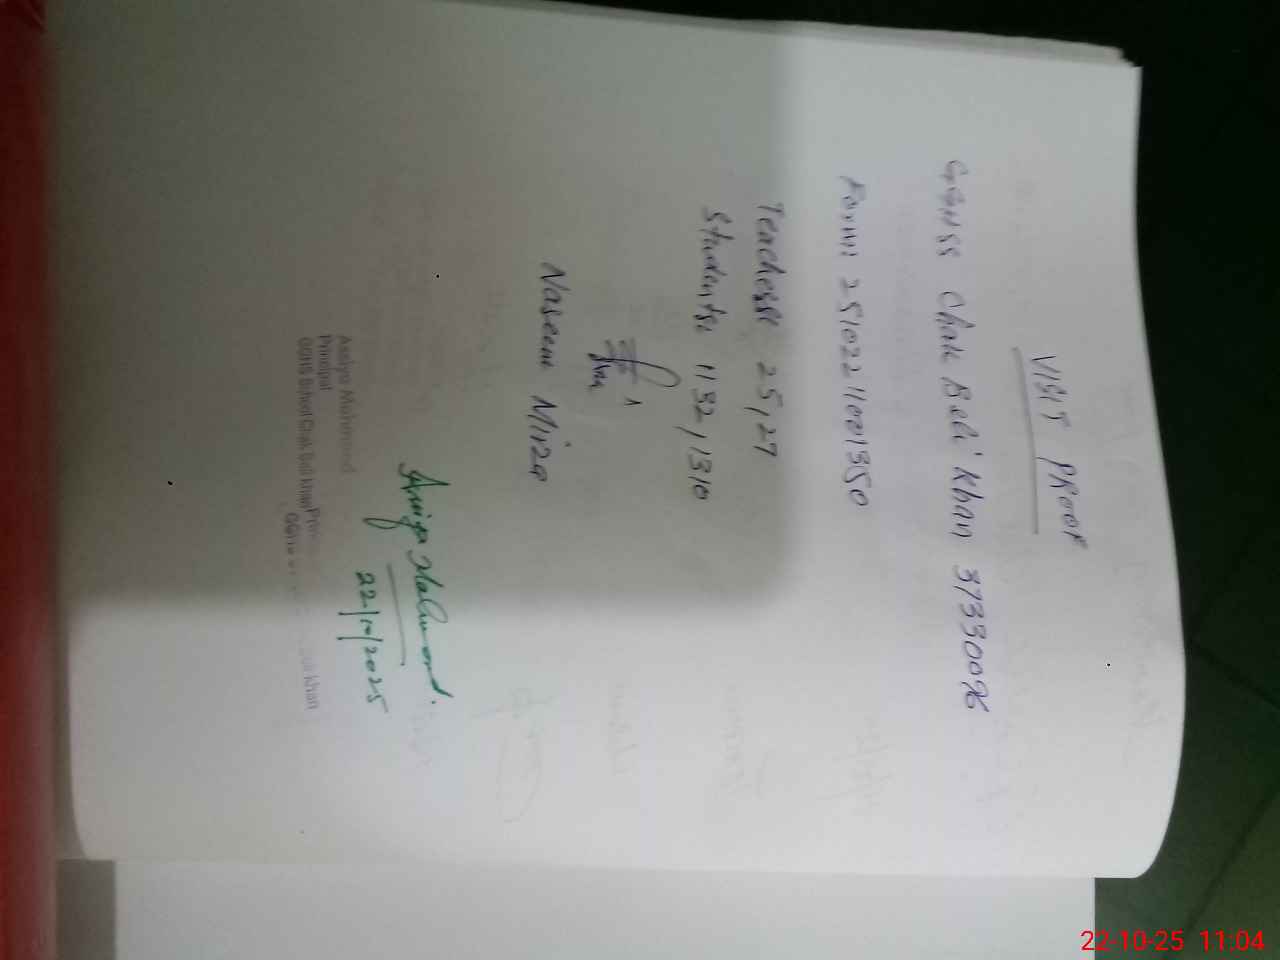 VISIT PROOF
GGHSS Chak Beli Khan 37330096
Form: 25102211001350
Teachers: 25/27
Students: 1132/1310
Naseem Mirza
Mahmood.
22/10/2025
Mahmood
Principal
GGHS School Chak Beli Khan
22-10-25 11:04